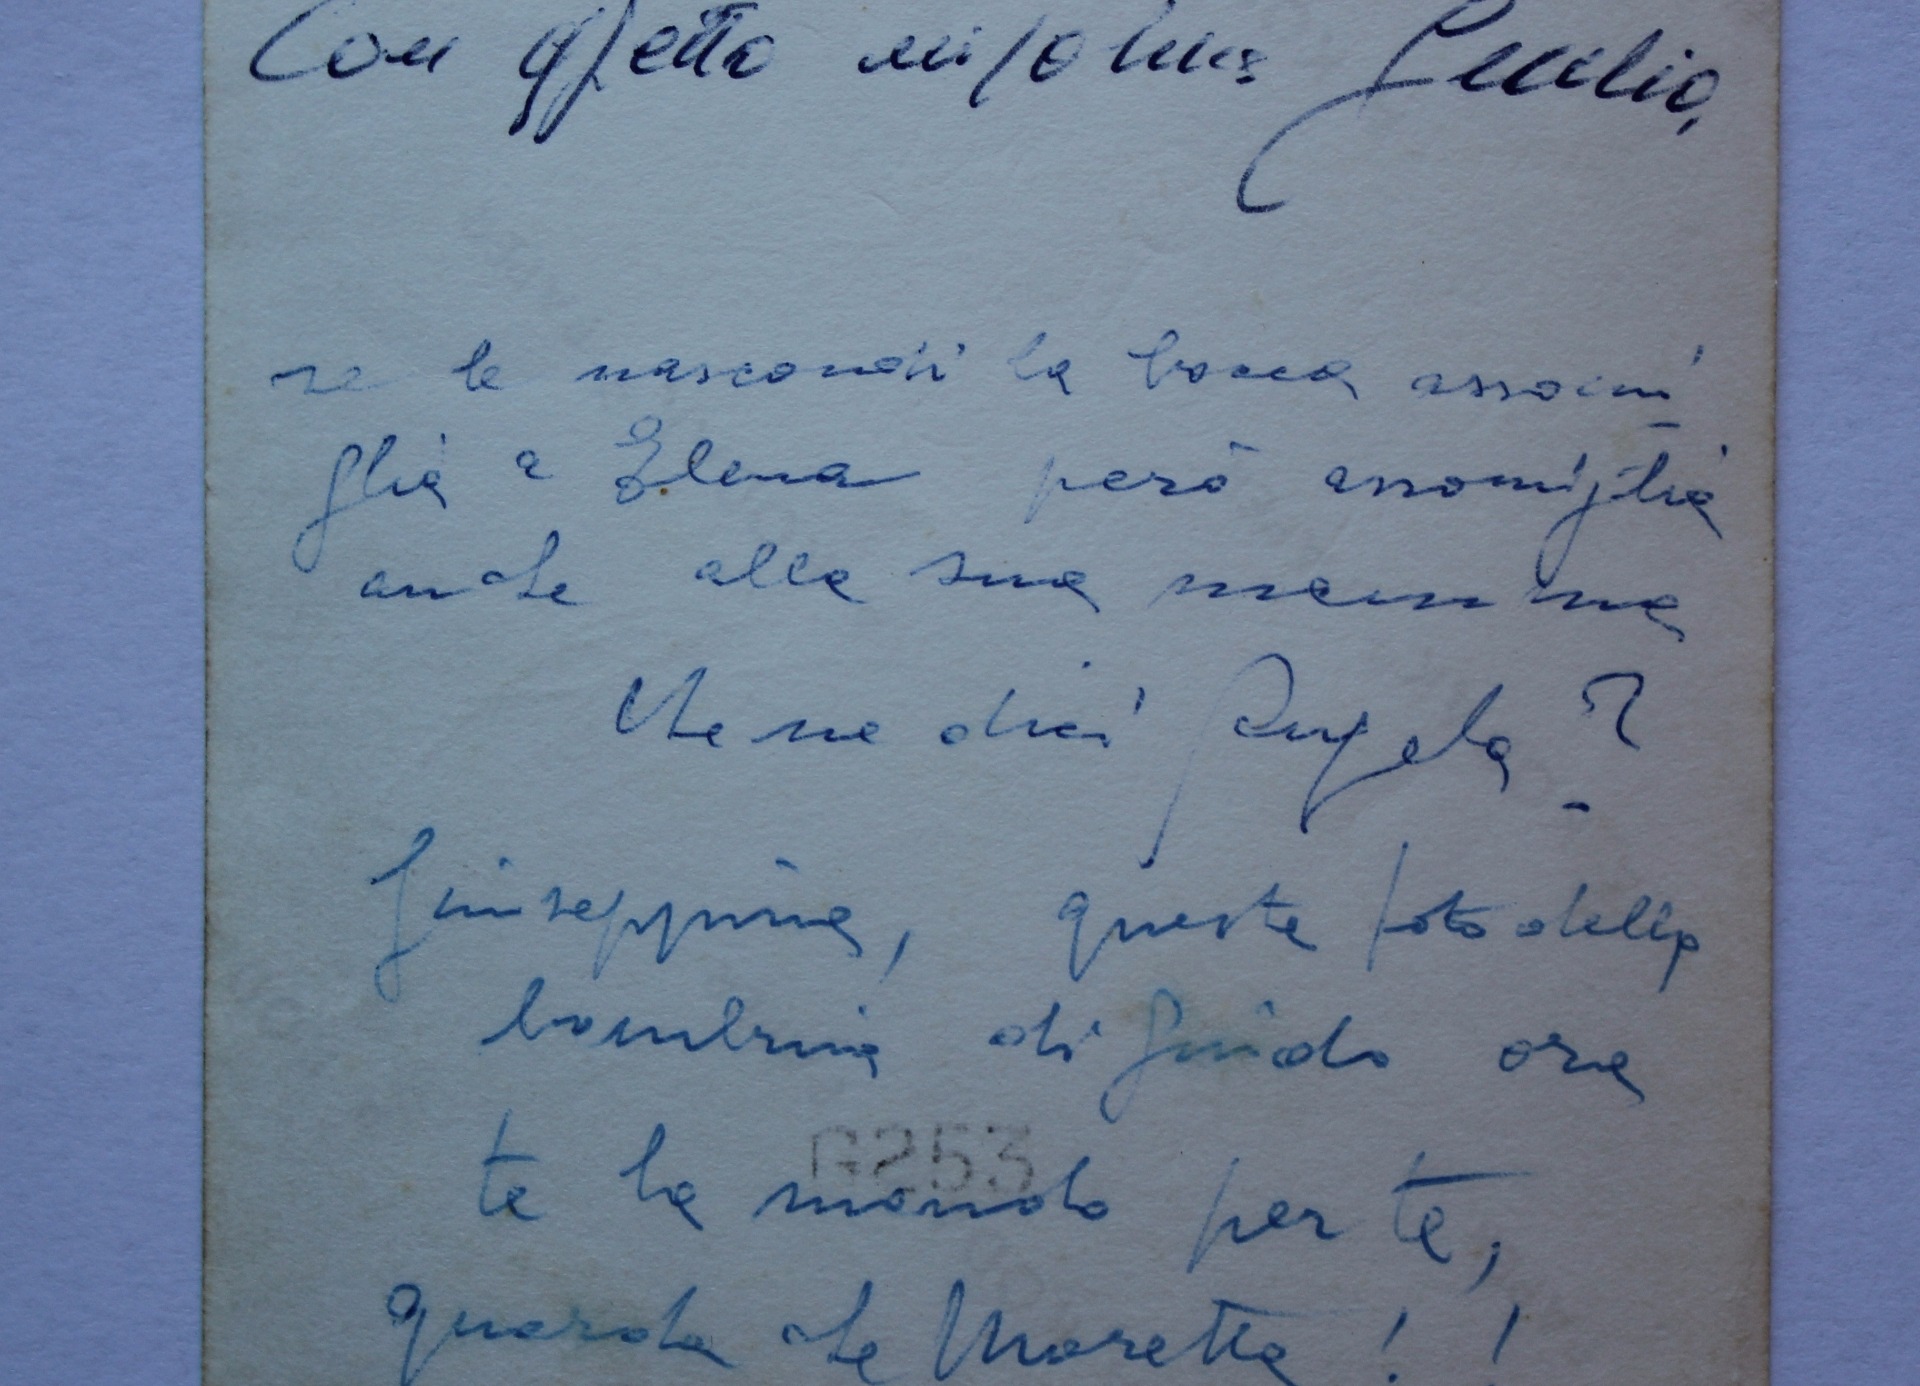 Con affetto
se le nascondi la bocca assomi
glia a Elena però assomiglia
anche alla sua mamma
Che ne dici Angela?
Giuseppina, questa foto della
bambina di Guido ora
te la mando per te,
G253
guarda che Moretta!!